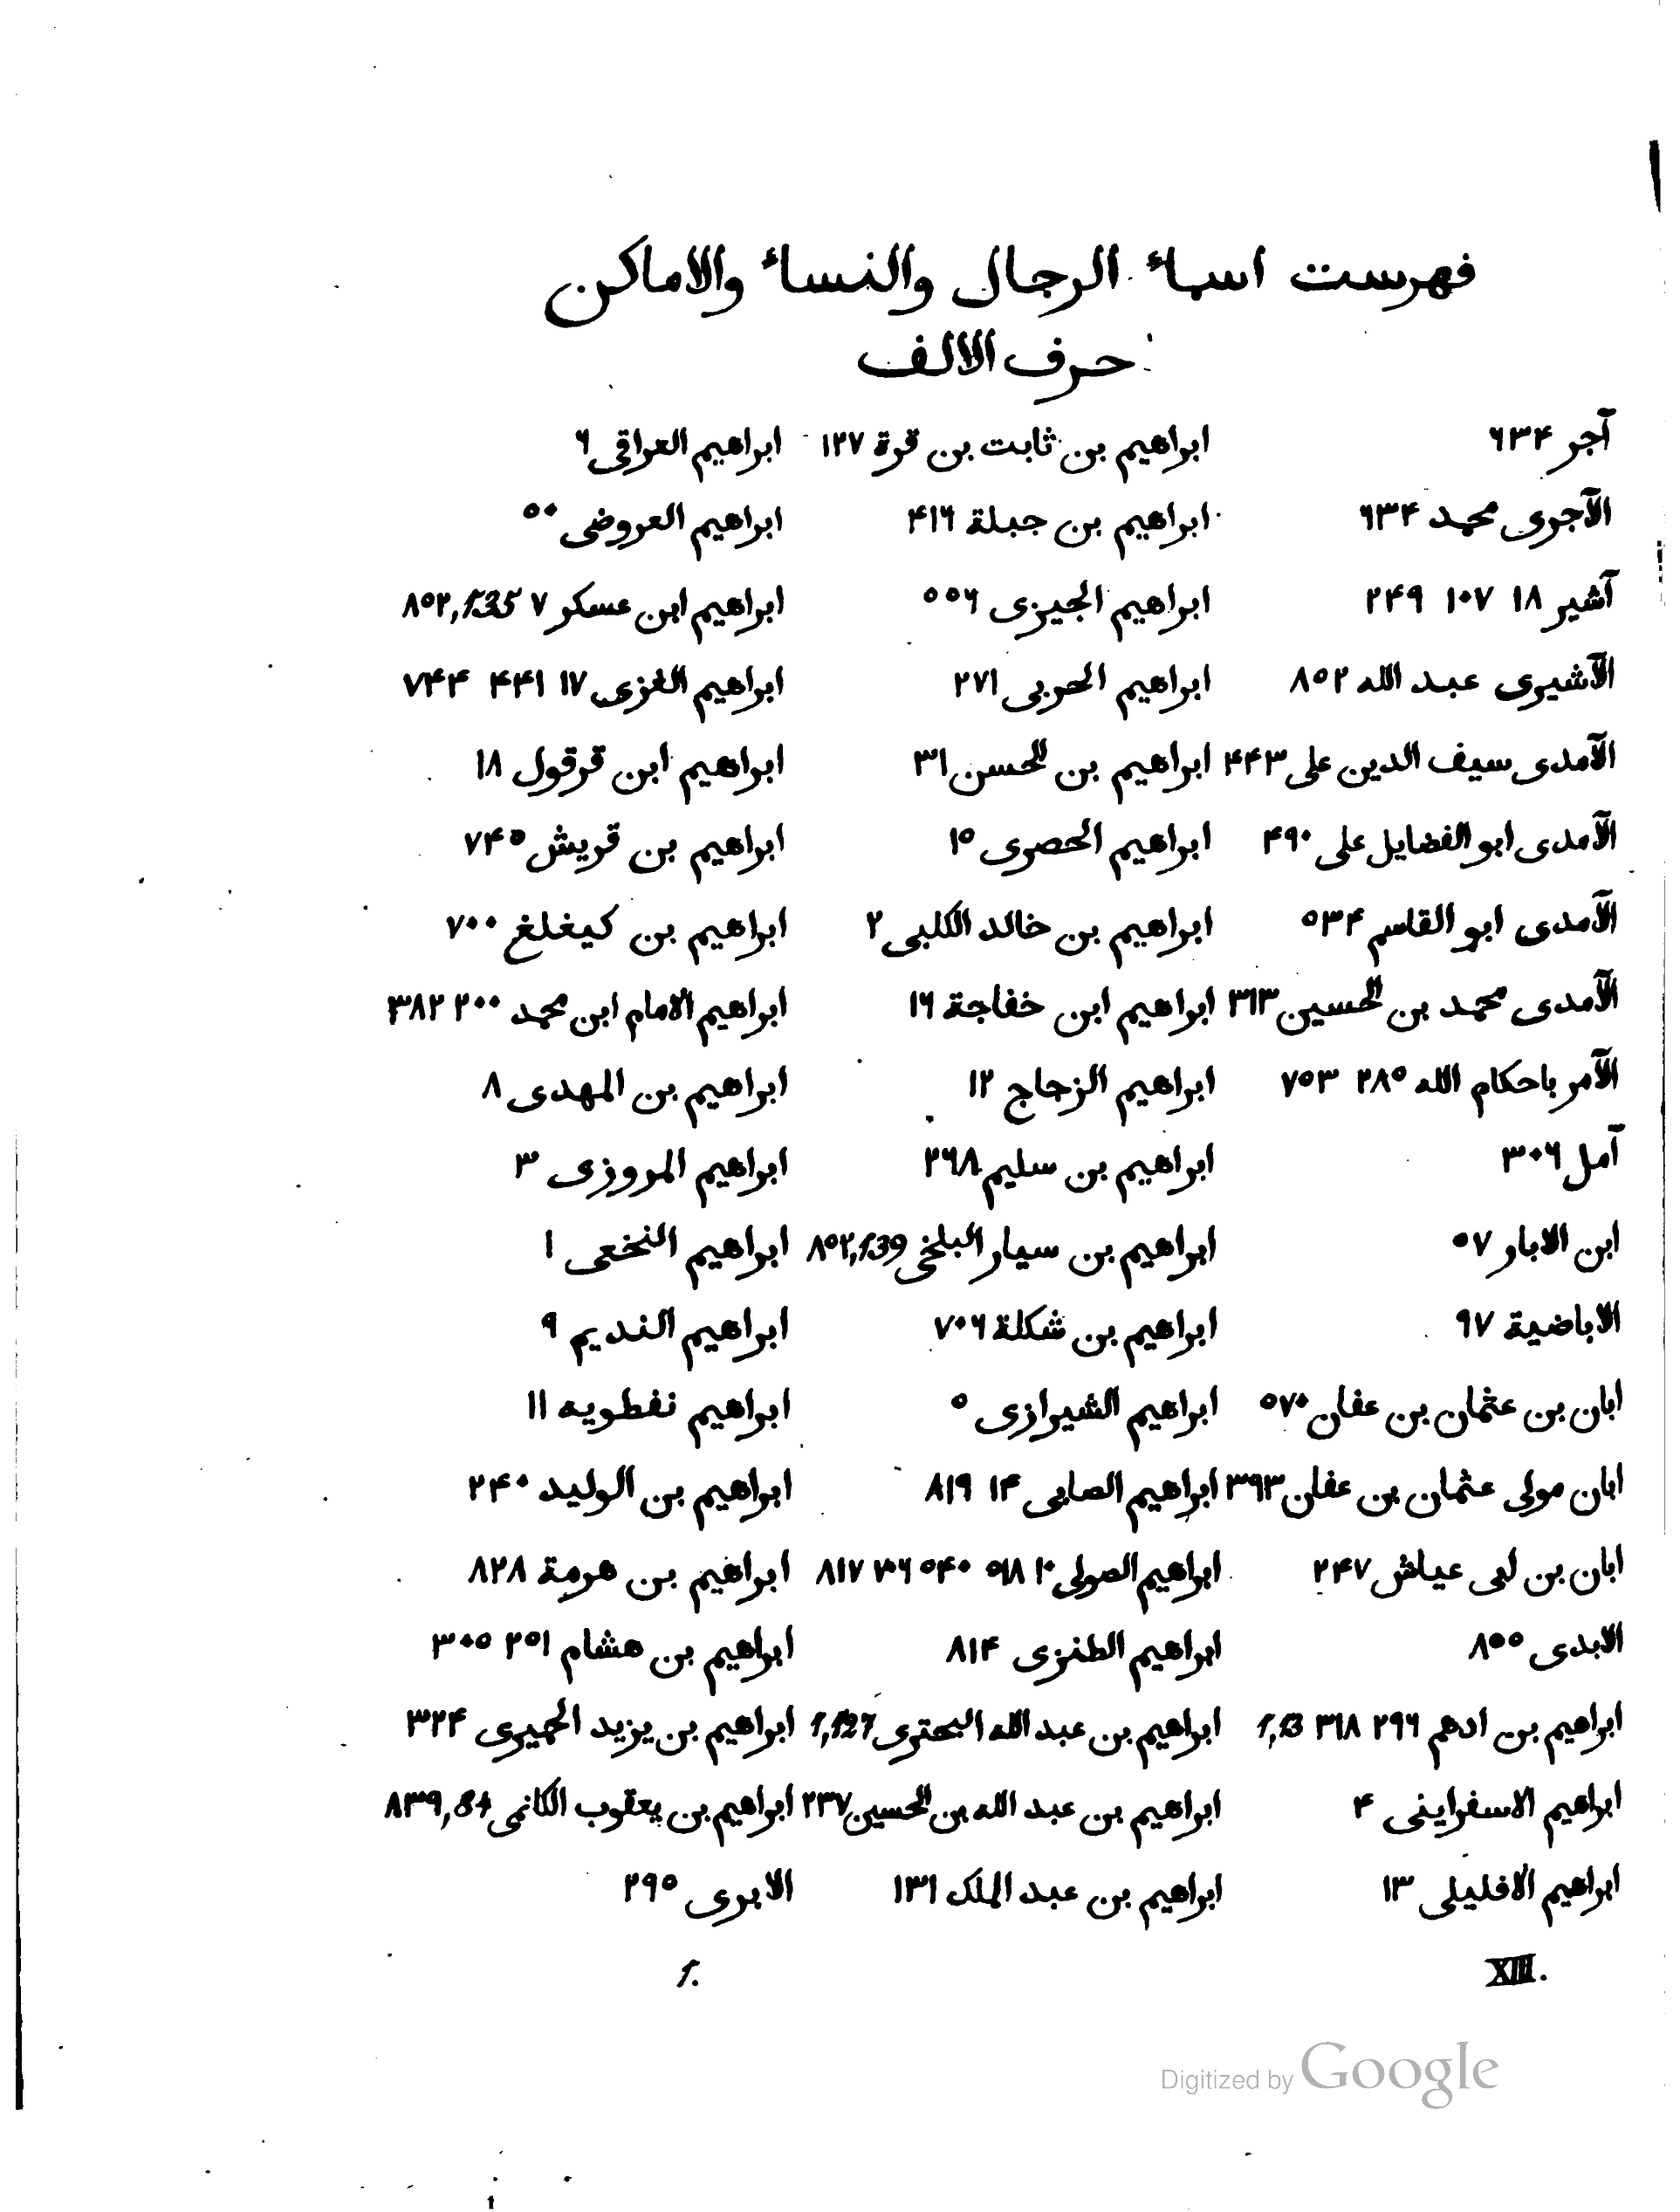 فهرست اسماء الرجال والنساء والاماكن
حرف الالف
آجر ۶۳۴
الآجرى محمد ۶۳۴
آشير ۱۸ ۱۰۷ ۲۴۹
الآشيرى عبد الله ۸۵۲
الآمدى سيف الدين على ۴۴۳
الآمدى ابو الفضايل على ۴۹۰
الآمدى ابو القاسم ۵۳۴
الآمدى محمد بن الحسين ۳۱۳
الآمر باحكام الله ۲۸۵ ۷۵۳
آمل ۳۰۶
ابن الابار ۵۷
الاباضية ۹۷
ابان بن عثمان بن عفان ۵۷۰
ابان مولى عثمان بن عفان ۳۹۳
ابان بن ابى عياش ۲۴۷
الابدى ۸۵۵
ابراهيم بن ادهم ۲۹۶ ۳۶۸ 1,13
ابراهيم الاسفراينى ۴
ابراهيم الافليلى ۱۳
ابراهيم بن ثابت بن قرة ۱۲۷
ابراهيم بن جبلة ۴۱۶
ابراهيم الجيزى ۵۵۶
ابراهيم الحربى ۲۷۱
ابراهيم بن الحسن ۳۱
ابراهيم الحصرى ۱۵
ابراهيم بن خالد الكلبى ۲
ابراهيم ابن خفاجة ۱۶
ابراهيم الزجاج ۱۲
ابراهيم بن سليم ۲۶۸
ابراهيم بن سيار البلخى ۸۵۲,139
ابراهيم بن شكلة ۷۰۶
ابراهيم الشيرازى ۵
ابراهيم الصابى ۱۴ ۸۱۹
ابراهيم الصولى ۱۰ ۵۴۰ ۸۱۷
ابراهيم الطنزى ۸۱۴
ابراهيم بن عبد الله البحترى 1,127
ابراهيم بن عبد الله بن الحسين ۲۳۷
ابراهيم بن عبد الملك ۱۳۱
ابراهيم العراقى ۶
ابراهيم العروضى ۵۰
ابراهيم ابن عسكر ۷ ۸۵۲,135
ابراهيم الغزى ۱۷ ۴۴۱ ۷۴۴
ابراهيم ابن قرقول ۱۸
ابراهيم بن قريش ۷۴۵
ابراهيم بن كيغلغ ۷۰۰
ابراهيم الامام ابن محمد ۲۰۰ ۳۸۲
ابراهيم بن المهدى ۸
ابراهيم المروزى ۳
ابراهيم النخعى ۱
ابراهيم النديم ۹
ابراهيم نفطويه ۱۱
ابراهيم بن الوليد ۲۴۰
ابراهيم بن هرمة ۸۲۸
ابراهيم بن هشام ۲۵۱ ۳۰۵
ابراهيم بن يزيد الحميرى ۳۲۴
ابراهيم بن يعقوب الكانمى ۸۳۹,84
الابرى ۲۹۵
XIII.
1.
Digitized by Google